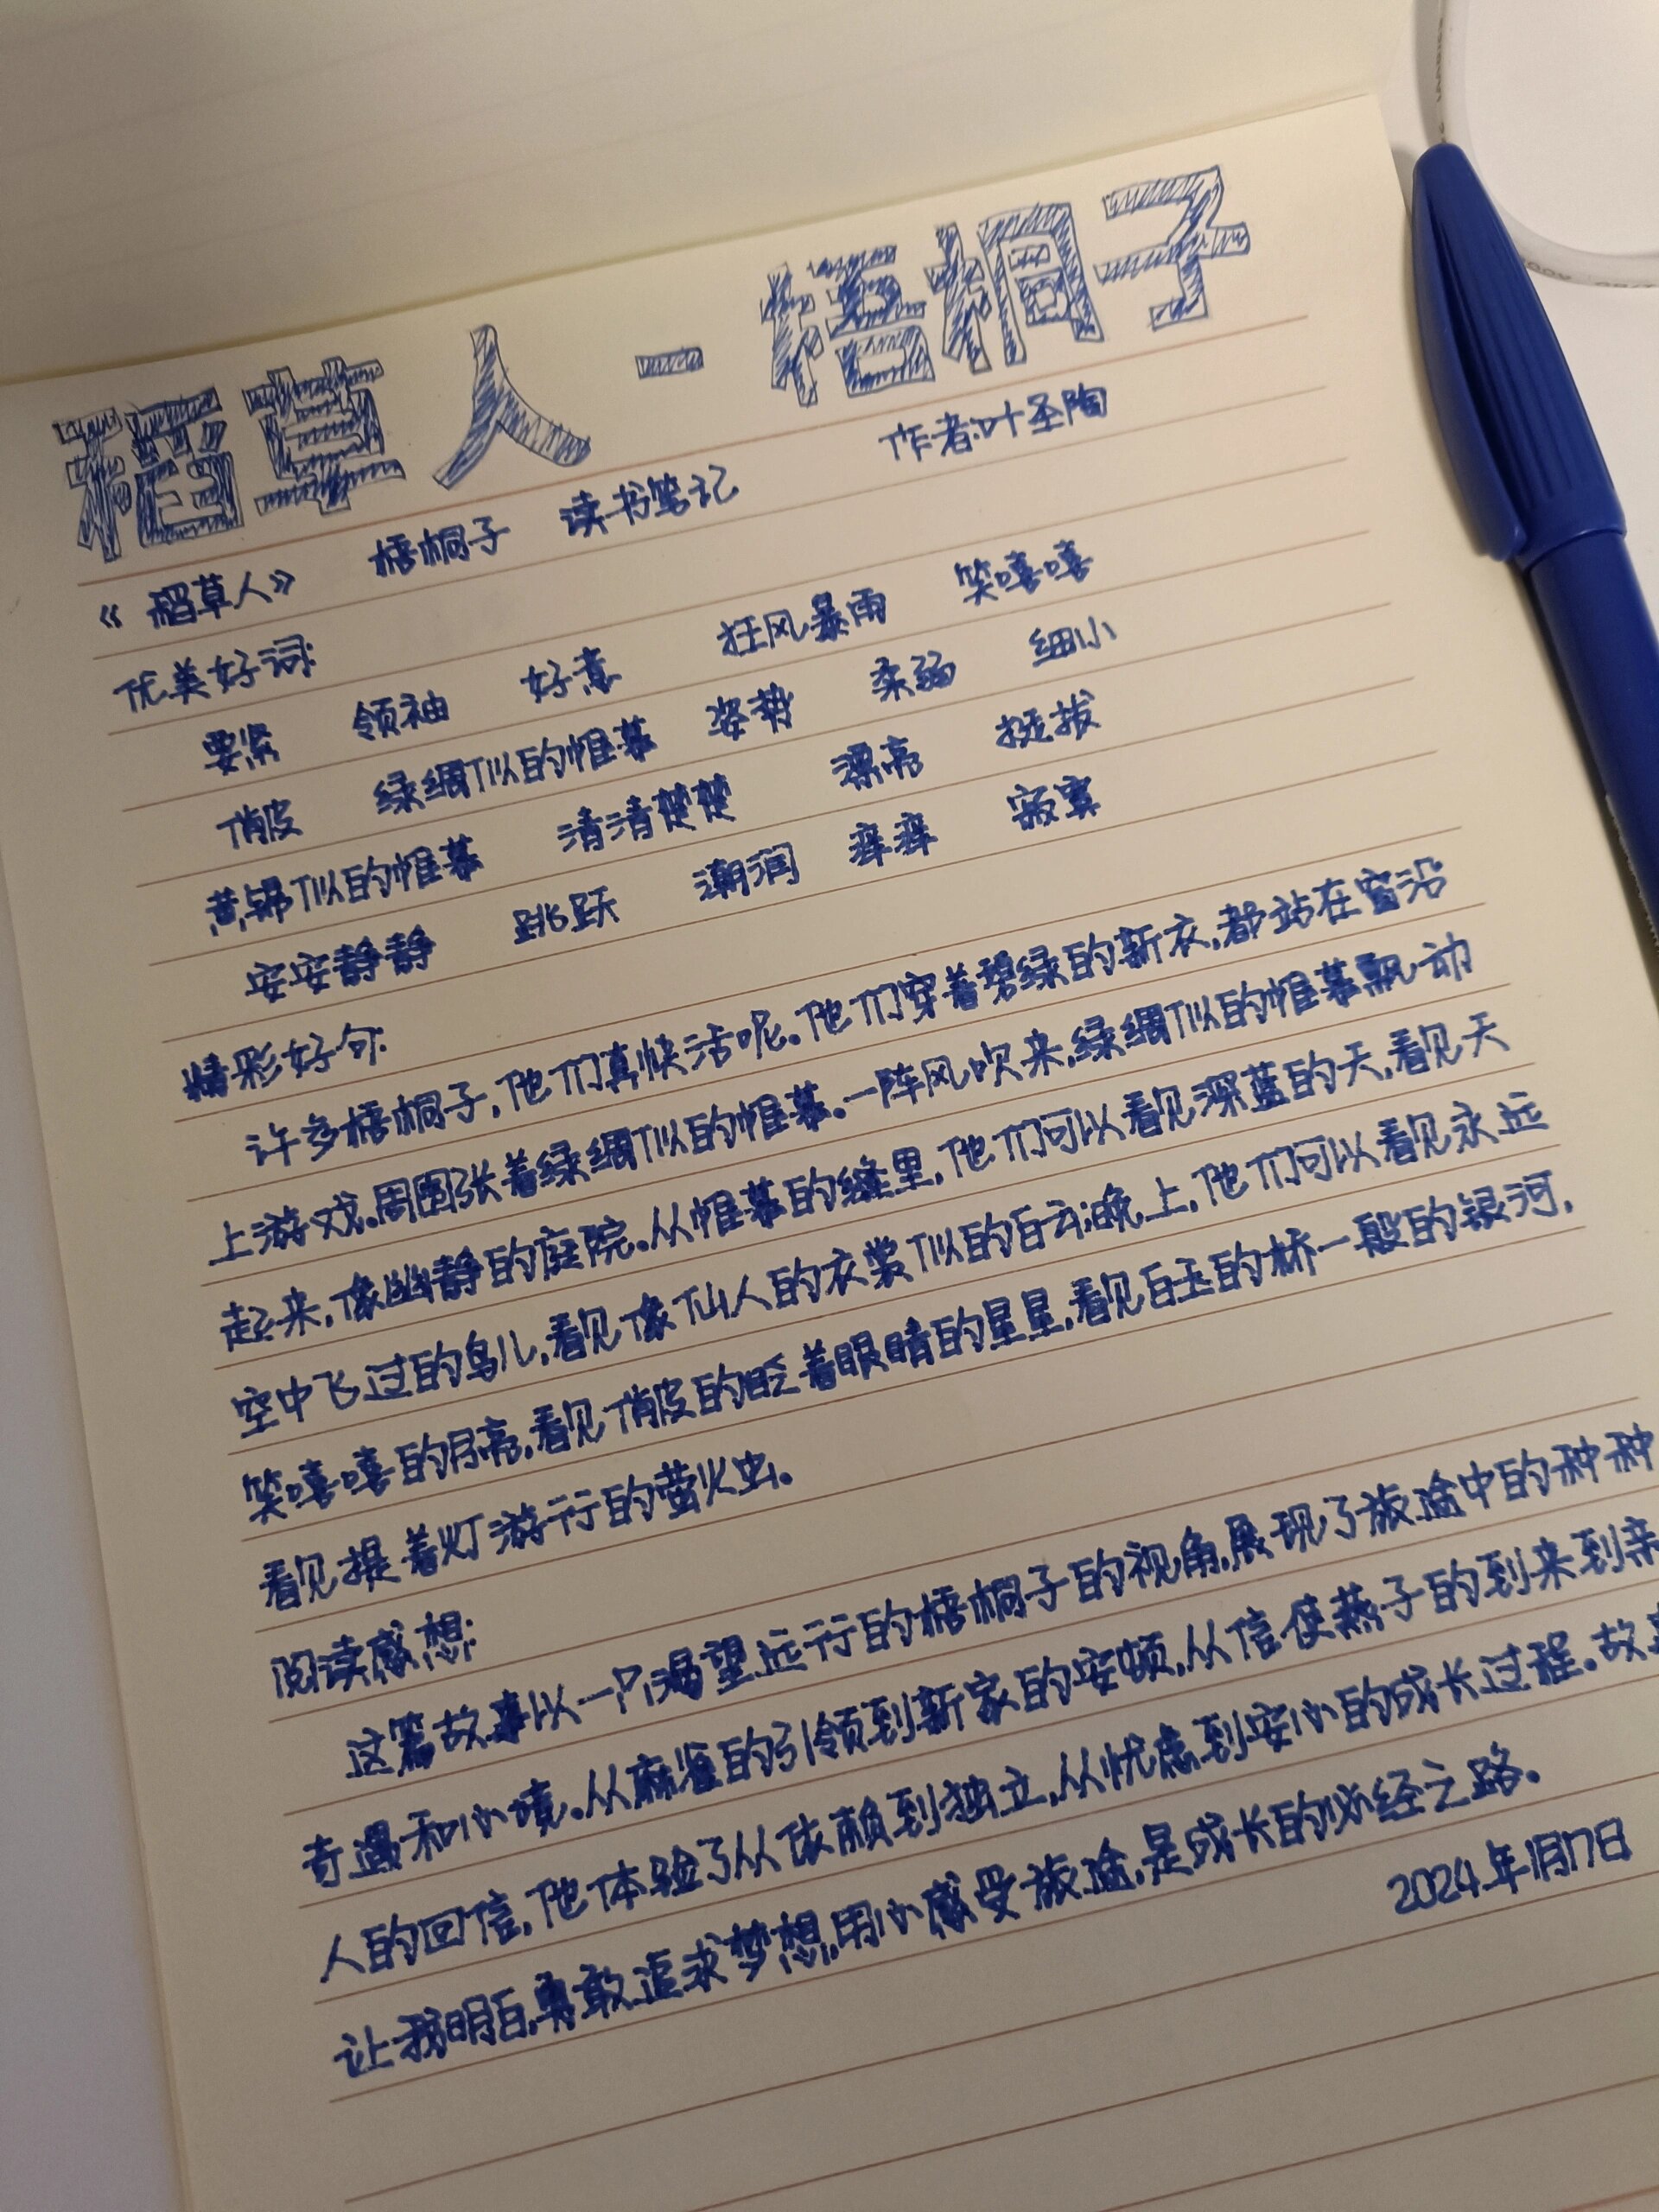 稻草人-梧桐子
作者:叶圣陶
《稻草人》 梧桐子 读书笔记
优美好词:
要紧 领袖 好意 狂风暴雨 笑嘻嘻
俏皮 绿绸似的帷幕 姿势 柔弱 细小
黄锦似的帷幕 清清楚楚 漂亮 挺拔
安安静静 跳跃 潮润 痒痒 寂寞
精彩好句:
许多梧桐子,他们真快活呢。他们穿着碧绿的新衣,都站在窗沿
上游戏。周围张着绿绸似的帷幕。一阵风吹来,绿绸似的帷幕飘动
起来,像幽静的庭院。从帷幕的缝里,他们可以看见深蓝的天,看见天
空中飞过的鸟儿,看见像仙人的衣裳似的白云;晚上,他们可以看见永远
笑嘻嘻的月亮,看见俏皮的眨着眼睛的星星,看见白玉的桥一般的银河,
看见提着灯游行的萤火虫。
阅读感想:
这篇故事以一只渴望远行的梧桐子的视角,展现了旅途中的种种
奇遇和心境。从麻雀的引领到新家的安顿,从信使燕子的到来到亲
人的回信,他体验了从依赖到独立,从忧虑到安心的成长过程。故事
让我明白,勇敢追求梦想,用心感受旅途,是成长的必经之路。
2024年1月17日